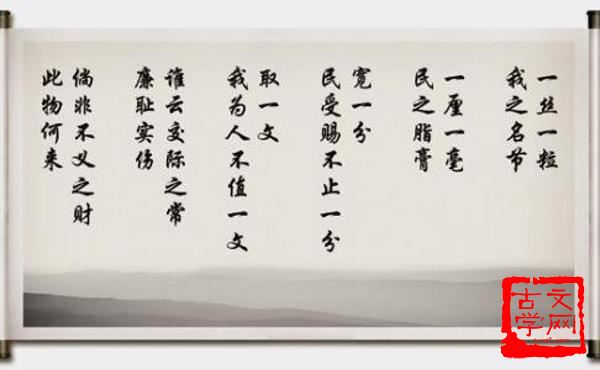 一丝一粒
我之名节
一厘一毫
民之脂膏
宽一分
民受赐不止一分
取一文
我为人不值一文
谁云交际之常
廉耻实伤
倘非不义之财
此物何来
古文
学网